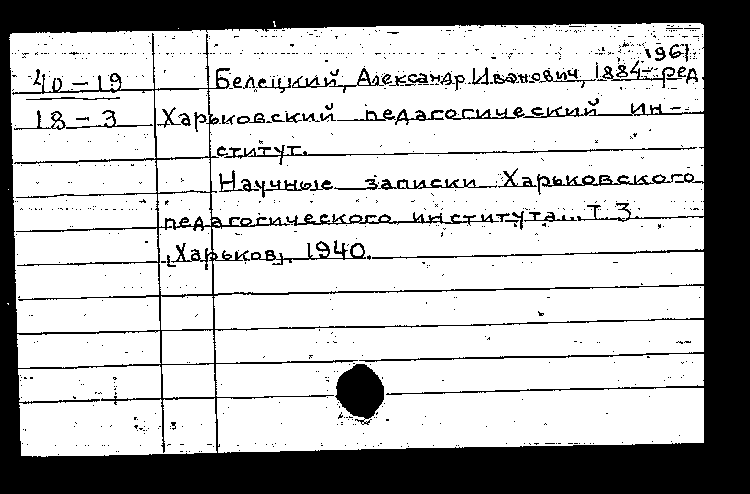 1961
40-19 Белецкий, Александр Иванович, 1884- ред.
18-3 Харьковский педагогический ин-
ститут.
Научные записки Харьковского
педагогического института... Т. 3.
[Харьков]. 1940.